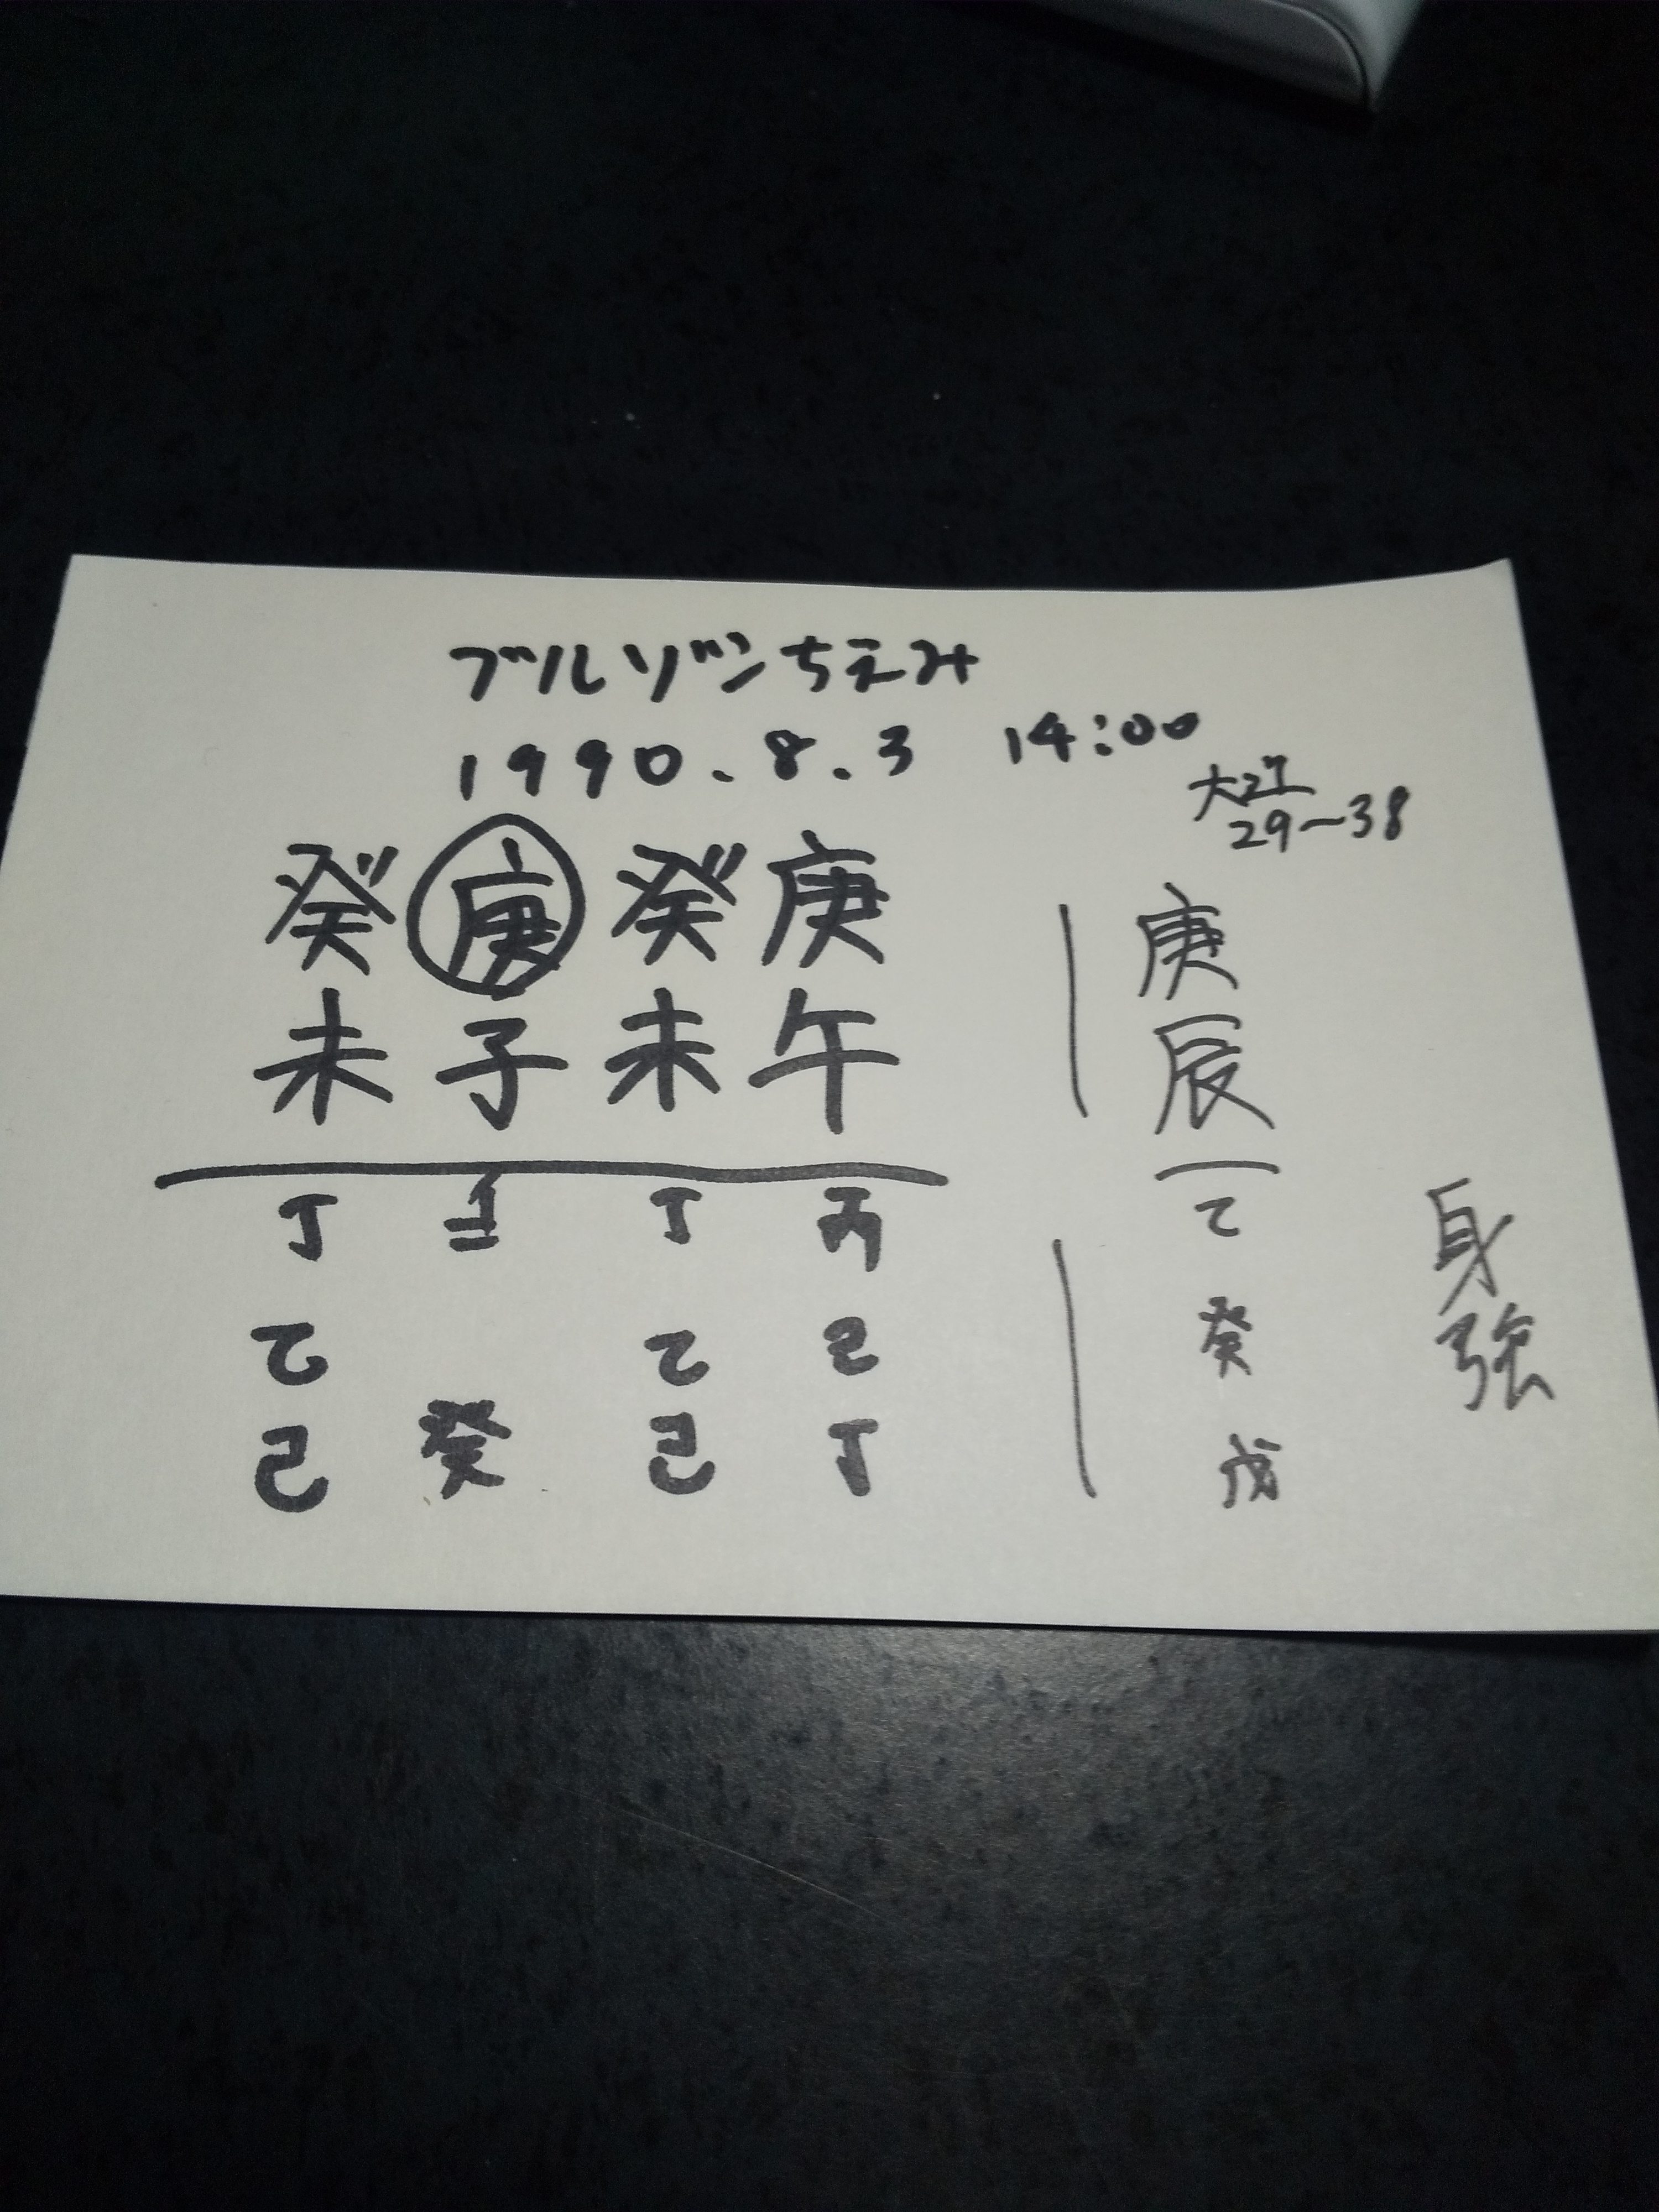 ブルゾンちえみ
1990.8.3 14:00
大運
29~38
癸庚癸庚
未子未午
丁壬丁丙
乙 乙己
己癸己丁
庚
辰
乙
癸
戊
身
強